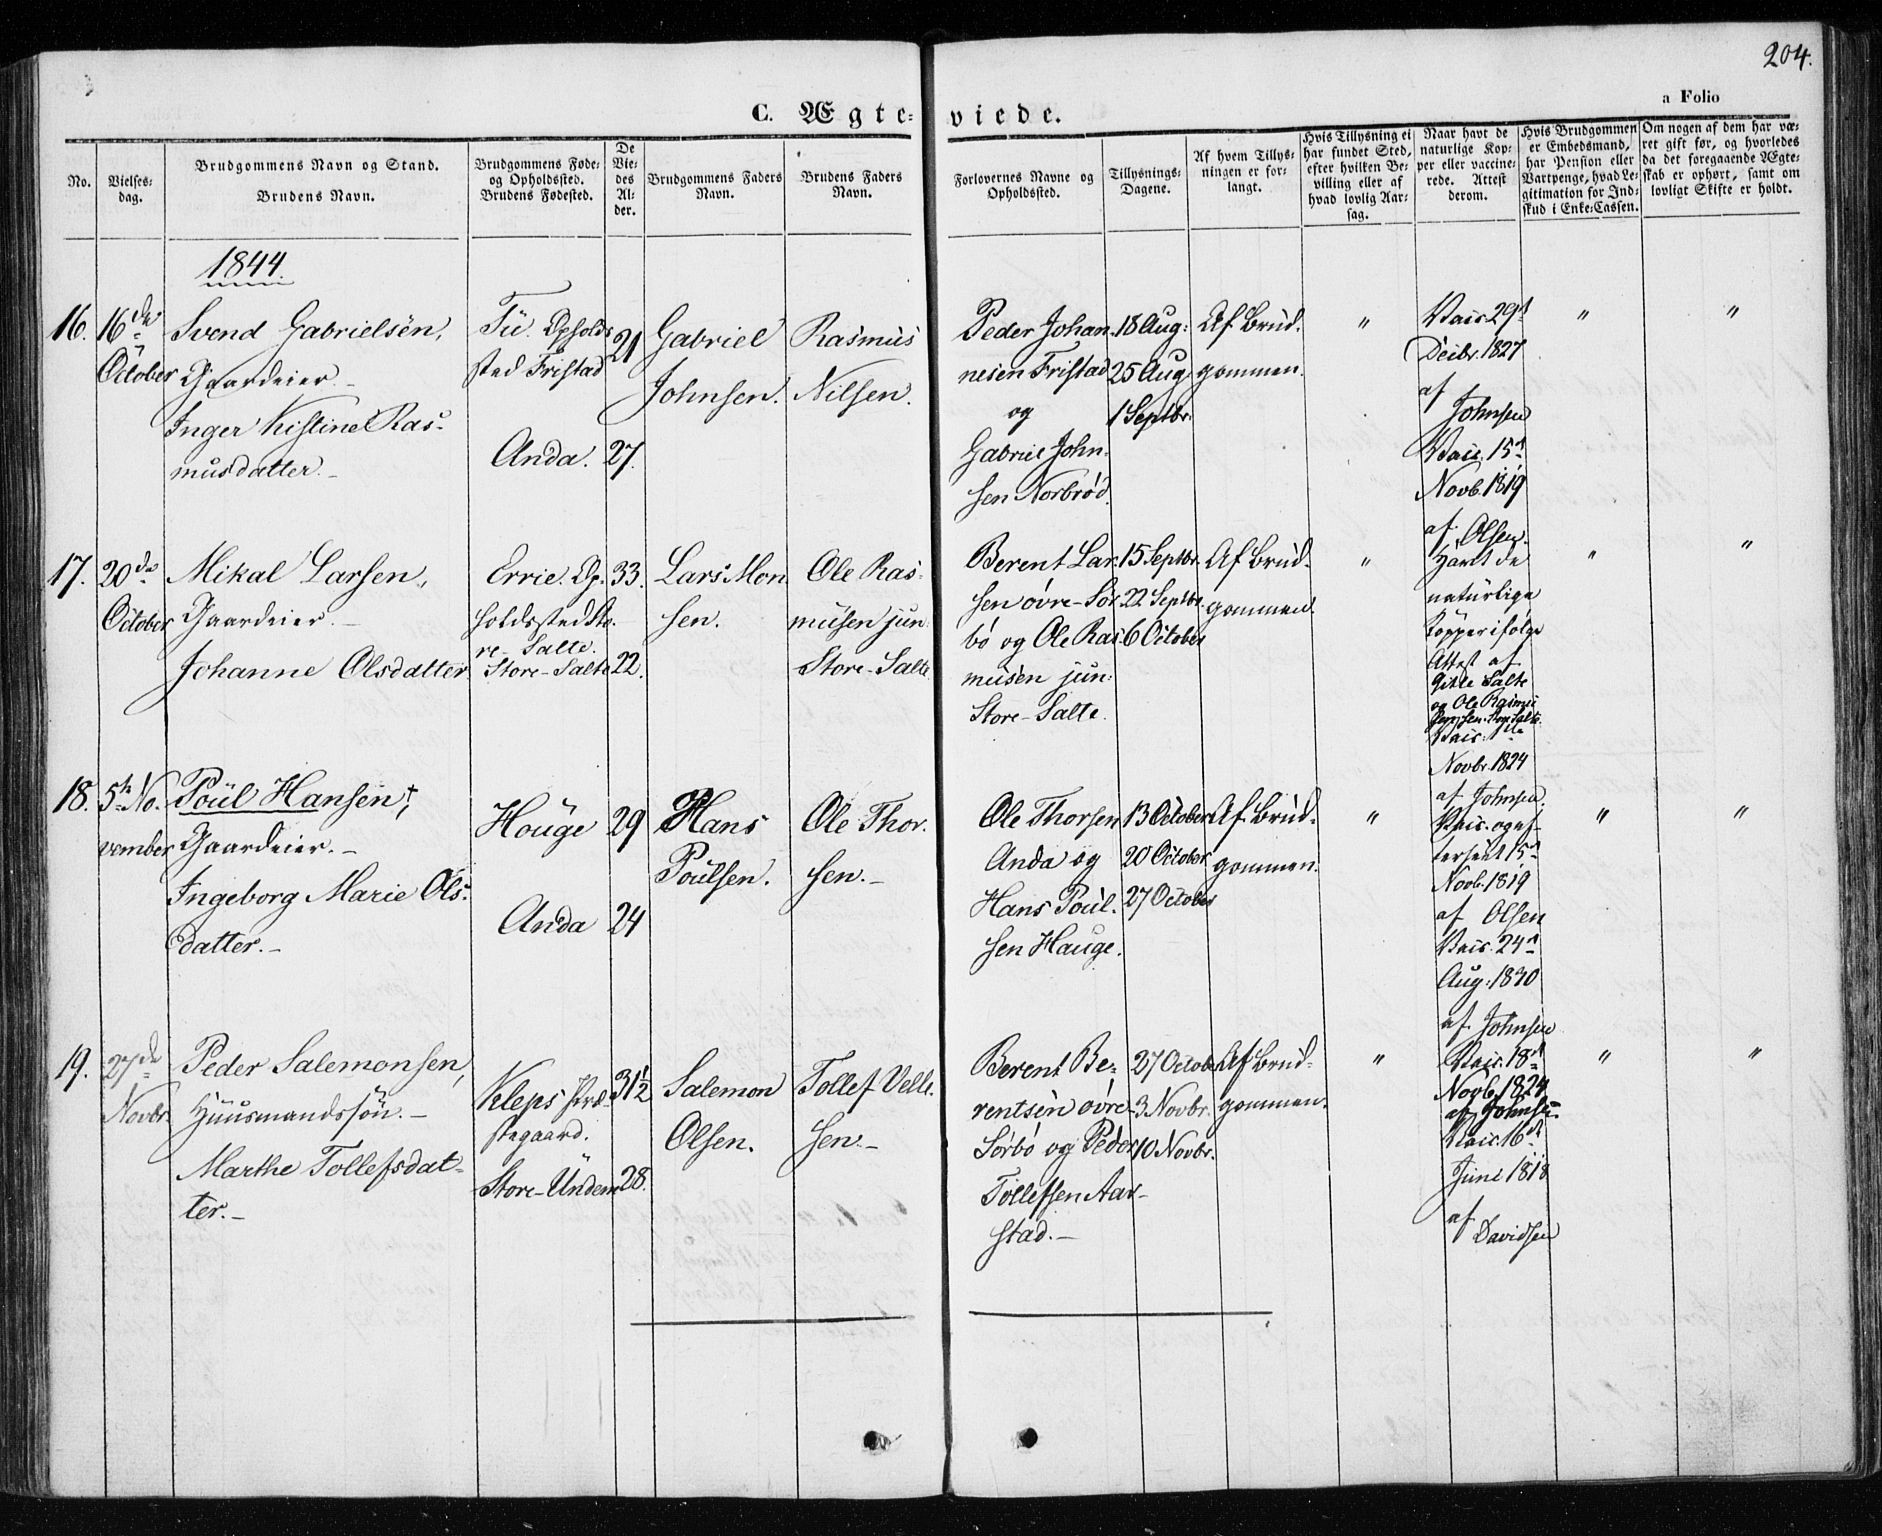 204.
a Folio
C. Ægte-viede.
No.
Vielses-
dag.
Brudgommens Navn og Stand.
Brudens Navn.
Brudgommens Føde-
og Opholdssted.
Brudens Fødested.
De
Vie-
des
Al-
der.
Brudgommens Faders
Navn.
Brudens Faders
Navn.
Forlovernes Navne og
Opholdssted.
Tillysnings-
Dagene.
Af hvem Tillys-
ningen er for-
langt.
Hvis Tillysning ei
har fundet Sted,
efter hvilken Be-
villing eller af
hvad lovlig Aar-
sag.
Naar havt de
naturlige Kop-
per eller vaccine-
rede. Attest
derom.
Hvis Brudgommen
er Embedsmand,
har Pension eller
Vartpenge, hvad Le-
gitimation for Ind-
skud i Enke-Cassen.
Om nogen af dem har væ-
ret gift før, og hvorledes
da det foregaaende Ægte-
skab er ophørt, samt om
lovligt Skifte er holdt.
1844.
16.
16de
October
Svend Gabrielsen,
Gaardeier.-
Inger Kistine Ras-
musdatter.-
Tu. Opholds
sted Fristad
Anda.
21
27.
Gabriel
Johnsen.
Rasmus
Nilsen.
Peder Johan-
nesen Fristad
og
Gabriel John-
sen Norbrød.
18 Aug:
25 Aug
1 Septbr.
Af Brud-
gommen.
"
Vais. 29d
Decbr. 1827
af
Johnsen
Vacc. 15d
Novb. 1819
af Olsen.
"
"
17.
20de
October
Mikal Larsen,
Gaardeier.-
Johanne Olsdatter
Errie. Op-
holdssted Sto-
re-Salte.
Store-Salte
33.
22.
Lars Mon-
sen.
Ole Ras-
musen jun:
Store-Salte.
Berent Lar-
sen øvre-Sør-
bø og Ole Ras-
musen jun:
Store-Salte.
15 Septbr.
22 Septbr.
6 October
Af Brud-
gommen.
"
Havt de
naturlige
Kopper ifølge
Attest af
Gitle Salte
og Ole Rasmus
Novbr. 1824
af Johnsen.
"
"
18.
5te No-
vember
Poul Hansen †,
Gaardeier.-
Ingeborg Marie Ols-
datter.-
Houge
Anda
29
24
Hans
Poulsen.
Ole Thor-
sen.-
Ole Thorsen
Anda og
Hans Poul-
sen Hauge.
13 October
20 October
27 October
Af Brud-
gommen.
"
Vais. og ef-
terseet 15d
Novb. 1819
af Olsen
Vais. 24d
Aug: 1830
af Johnsen
"
"
19.
27de
Novbr.
Peder Salemonsen,
Huusmandssøn.-
Marthe Tollefsdat-
ter.-
Kleps Præ-
stegaard.
Store-Undem
31½
28.
Salemon
Olsen.
Tollef Velle-
sen.-
Berent Be-
rentsen øvre-
Sørbø og Peder
Tollefsen Aar-
stad.-
27 October
3 Novbr.
10 Novbr.
Af Brud-
gommen.
"
Vais. 18d
Novb. 1824
af Johnsen
Vais. 16d
Juni 1818
af
Davidsen
"
"